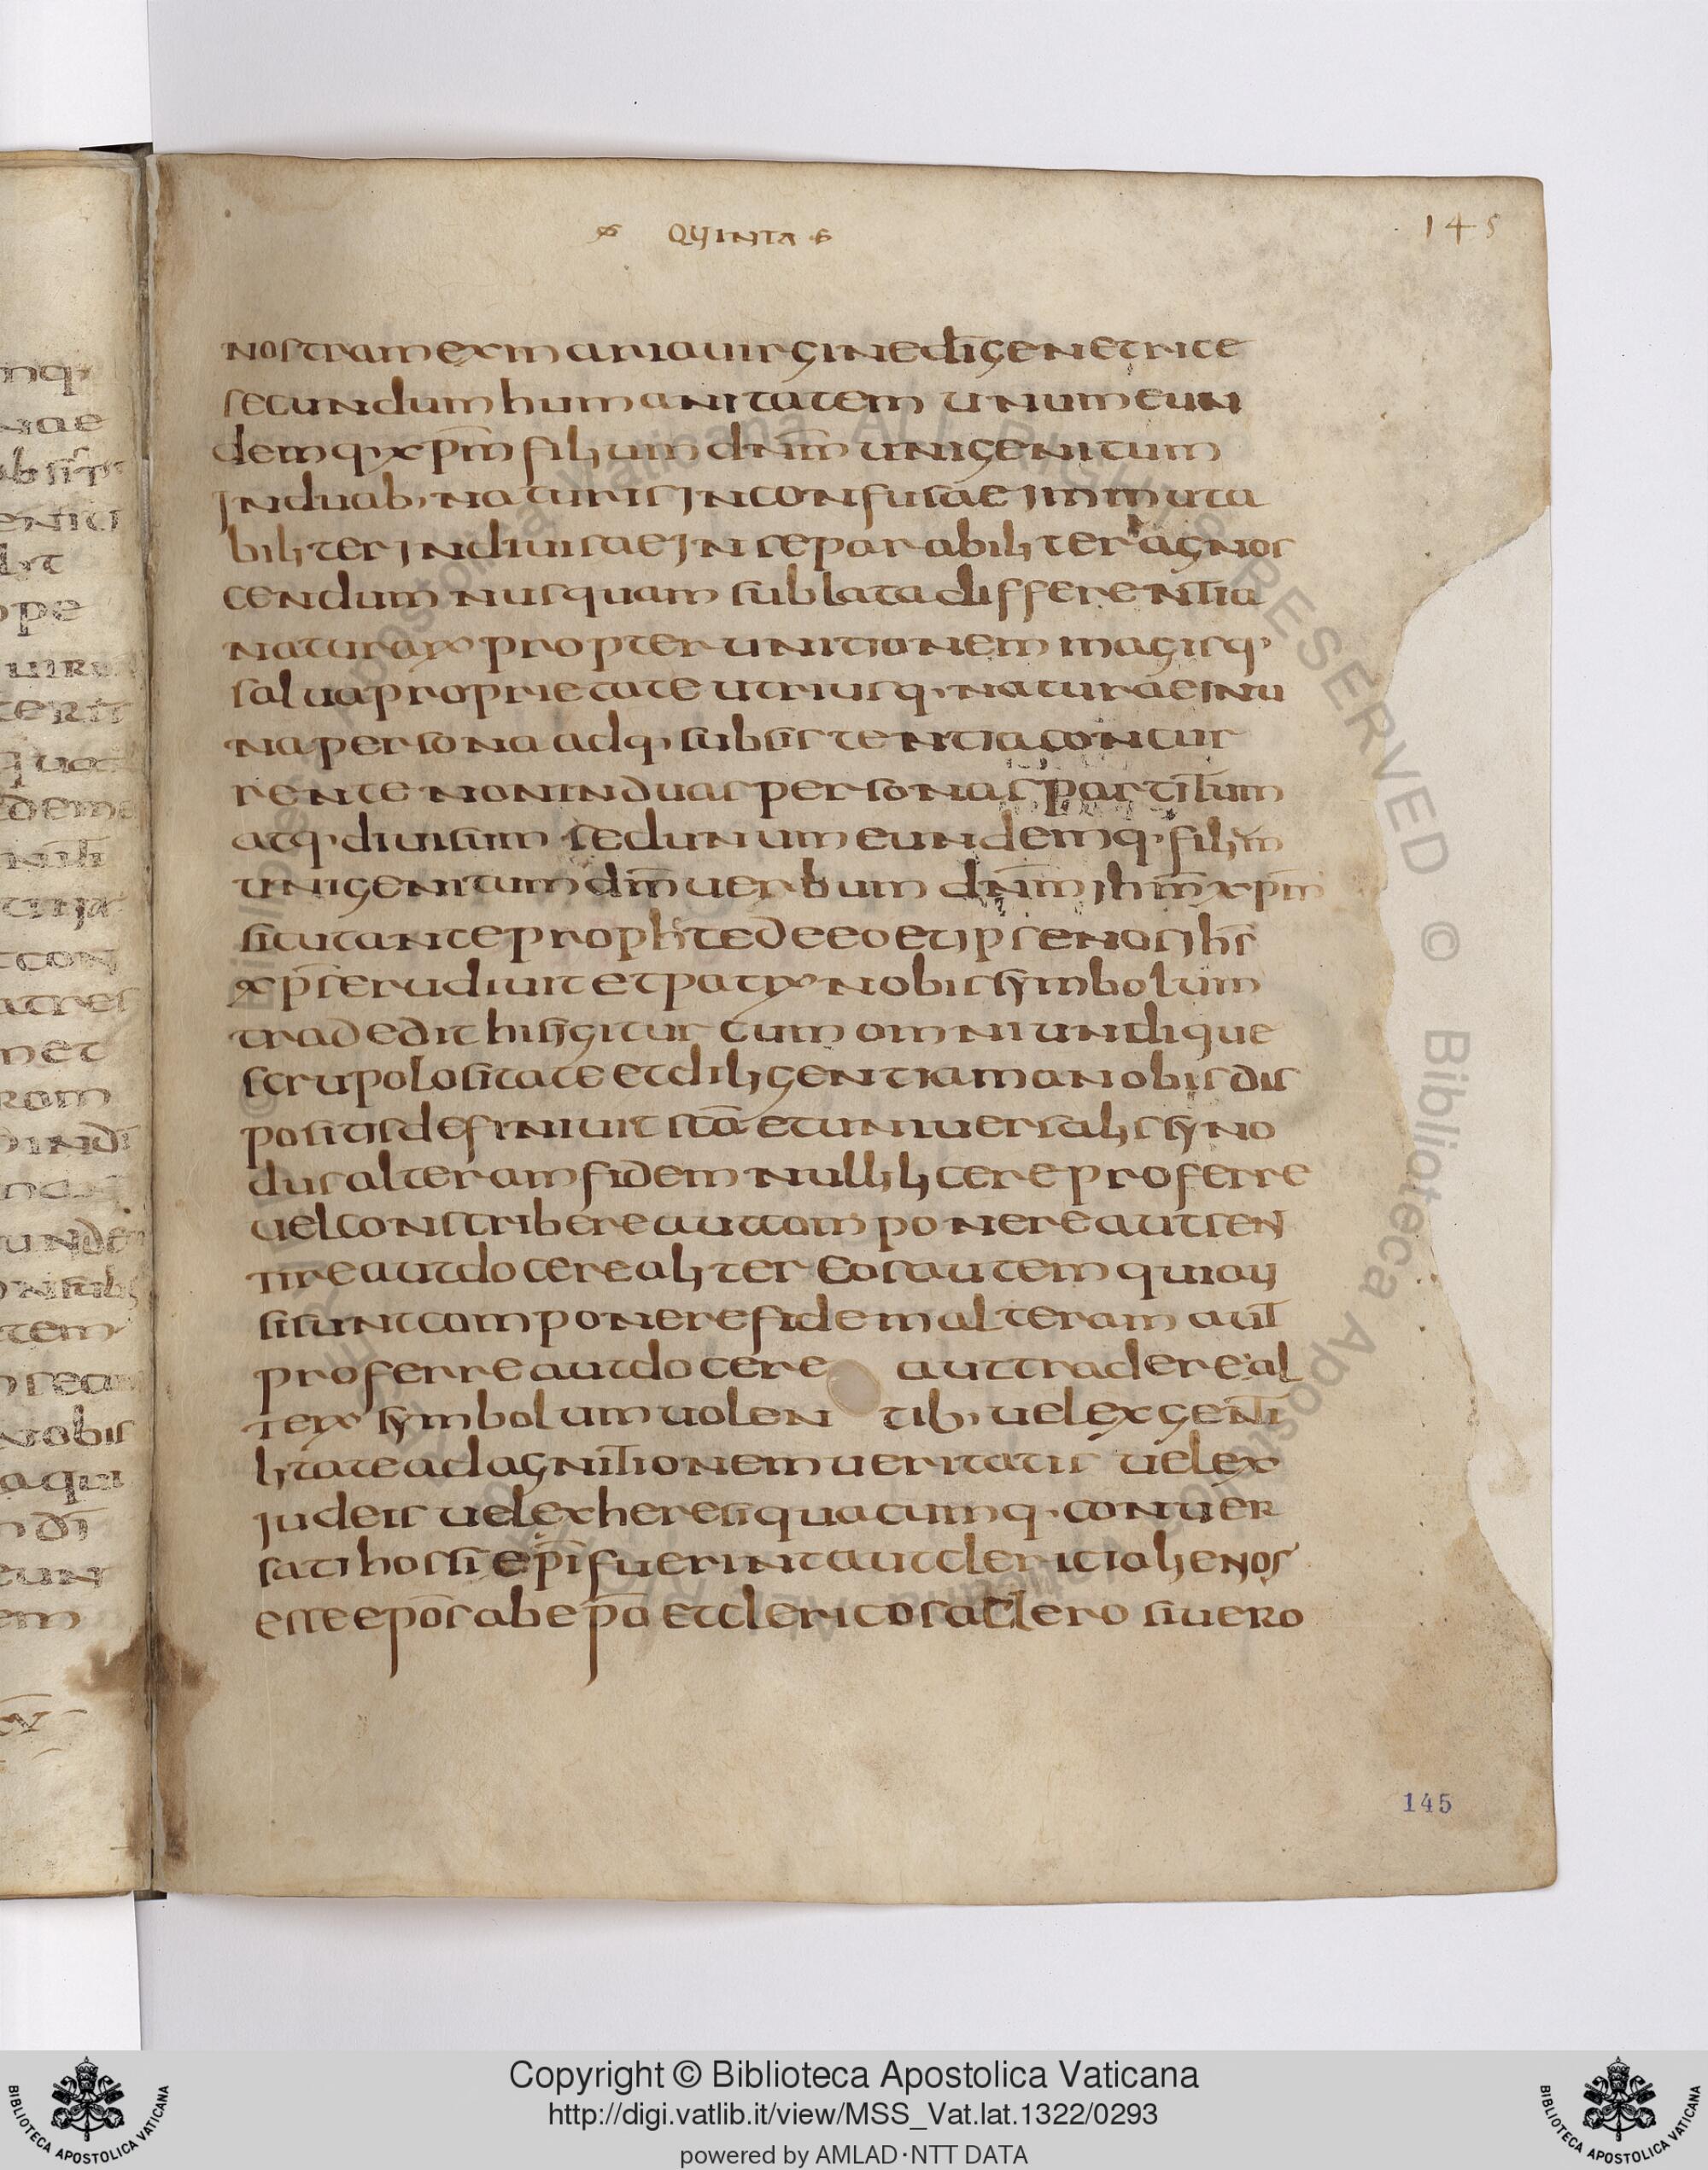 QUINTA
145
nostram ex maria uirgine di̅ genetrice
secundum humanitatem unum eun
demq· xp̅m filium dn̅m unigenitum
in duab· naturis inconfusae immuta
biliter indiuisae inseparabiliter agnos
cendum nusquam sublata differentia
naturarum propter unitionem magisq·
salua proprietate utriusq· naturae in u
na persona adq· subsistentia concur
rente non in duas personas partitum
atq· diuisum sed unum eundemq· filium
unigenitum dm̅ uerbum dn̅m ihm̅ xpm̅
sicut ante prophte de eo et ipse nos ihs̅
xps̅ erudiuit et patrum nobis symbolum
tradedit his igitur cum omni undique
scrupolositate et diligentiam a nobis dis
positis definiuit sc̅a et uniuersalis syno
dus alteram fidem nulli licere proferre
uel conscribere aut componere aut sen
tire aut docere aliter Eos autem qui au
si sunt componere fidem alteram aut
proferre aut docere aut tradere al
terum symbolum uolentib· uel ex genti
litate ad agnitionem ueritatis uel ex
iudeis uel ex heresi quacumq· conuer
sati hos si epi̅ fuerint aut clerici alienos
esse epo̅s ab epa̅ et clericos a clero si uero
145
Copyright © Biblioteca Apostolica Vaticana
http://digi.vatlib.it/view/MSS_Vat.lat.1322/0293
powered by AMLAD·NTT DATA
BIBLIOTECA APOSTOLICA VATICANA
BIBLIOTECA APOSTOLICA VATICANA